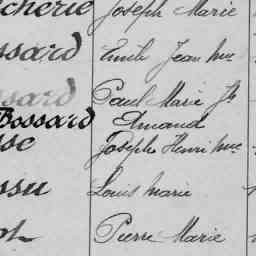 cherie Joseph Marie
ssard Emile Jean Mie
ssard Paul Marie Jh
Bossard Amand
se Joseph Henri Mie
ssu Louis Marie
Pierre Marie